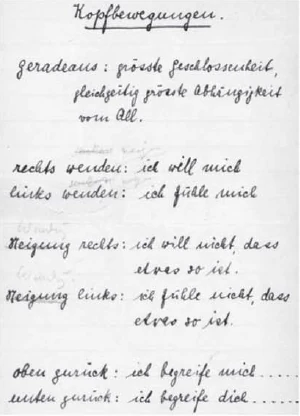 Kopfbewegungen.
geradeaus: grösste Geschlossenheit,
gleichzeitig grösste Abhängigkeit
vom All.
rechts wenden: ich will mich
links wenden: ich fühle mich
Neigung rechts: ich will nicht, dass
etwas so ist.
Neigung links: ich fühle nicht, dass
etwas so ist.
oben zurück: ich begreife mich.....
unten zurück: ich begreife dich......